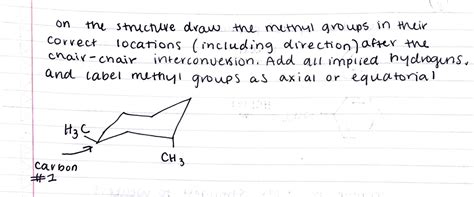 on the structure draw the methyl groups in their
correct locations (including direction) after the
chair-chair interconversion. Add all implied hydrogens.
and label methyl groups as axial or equatorial
H3C
CH3
carbon
#1